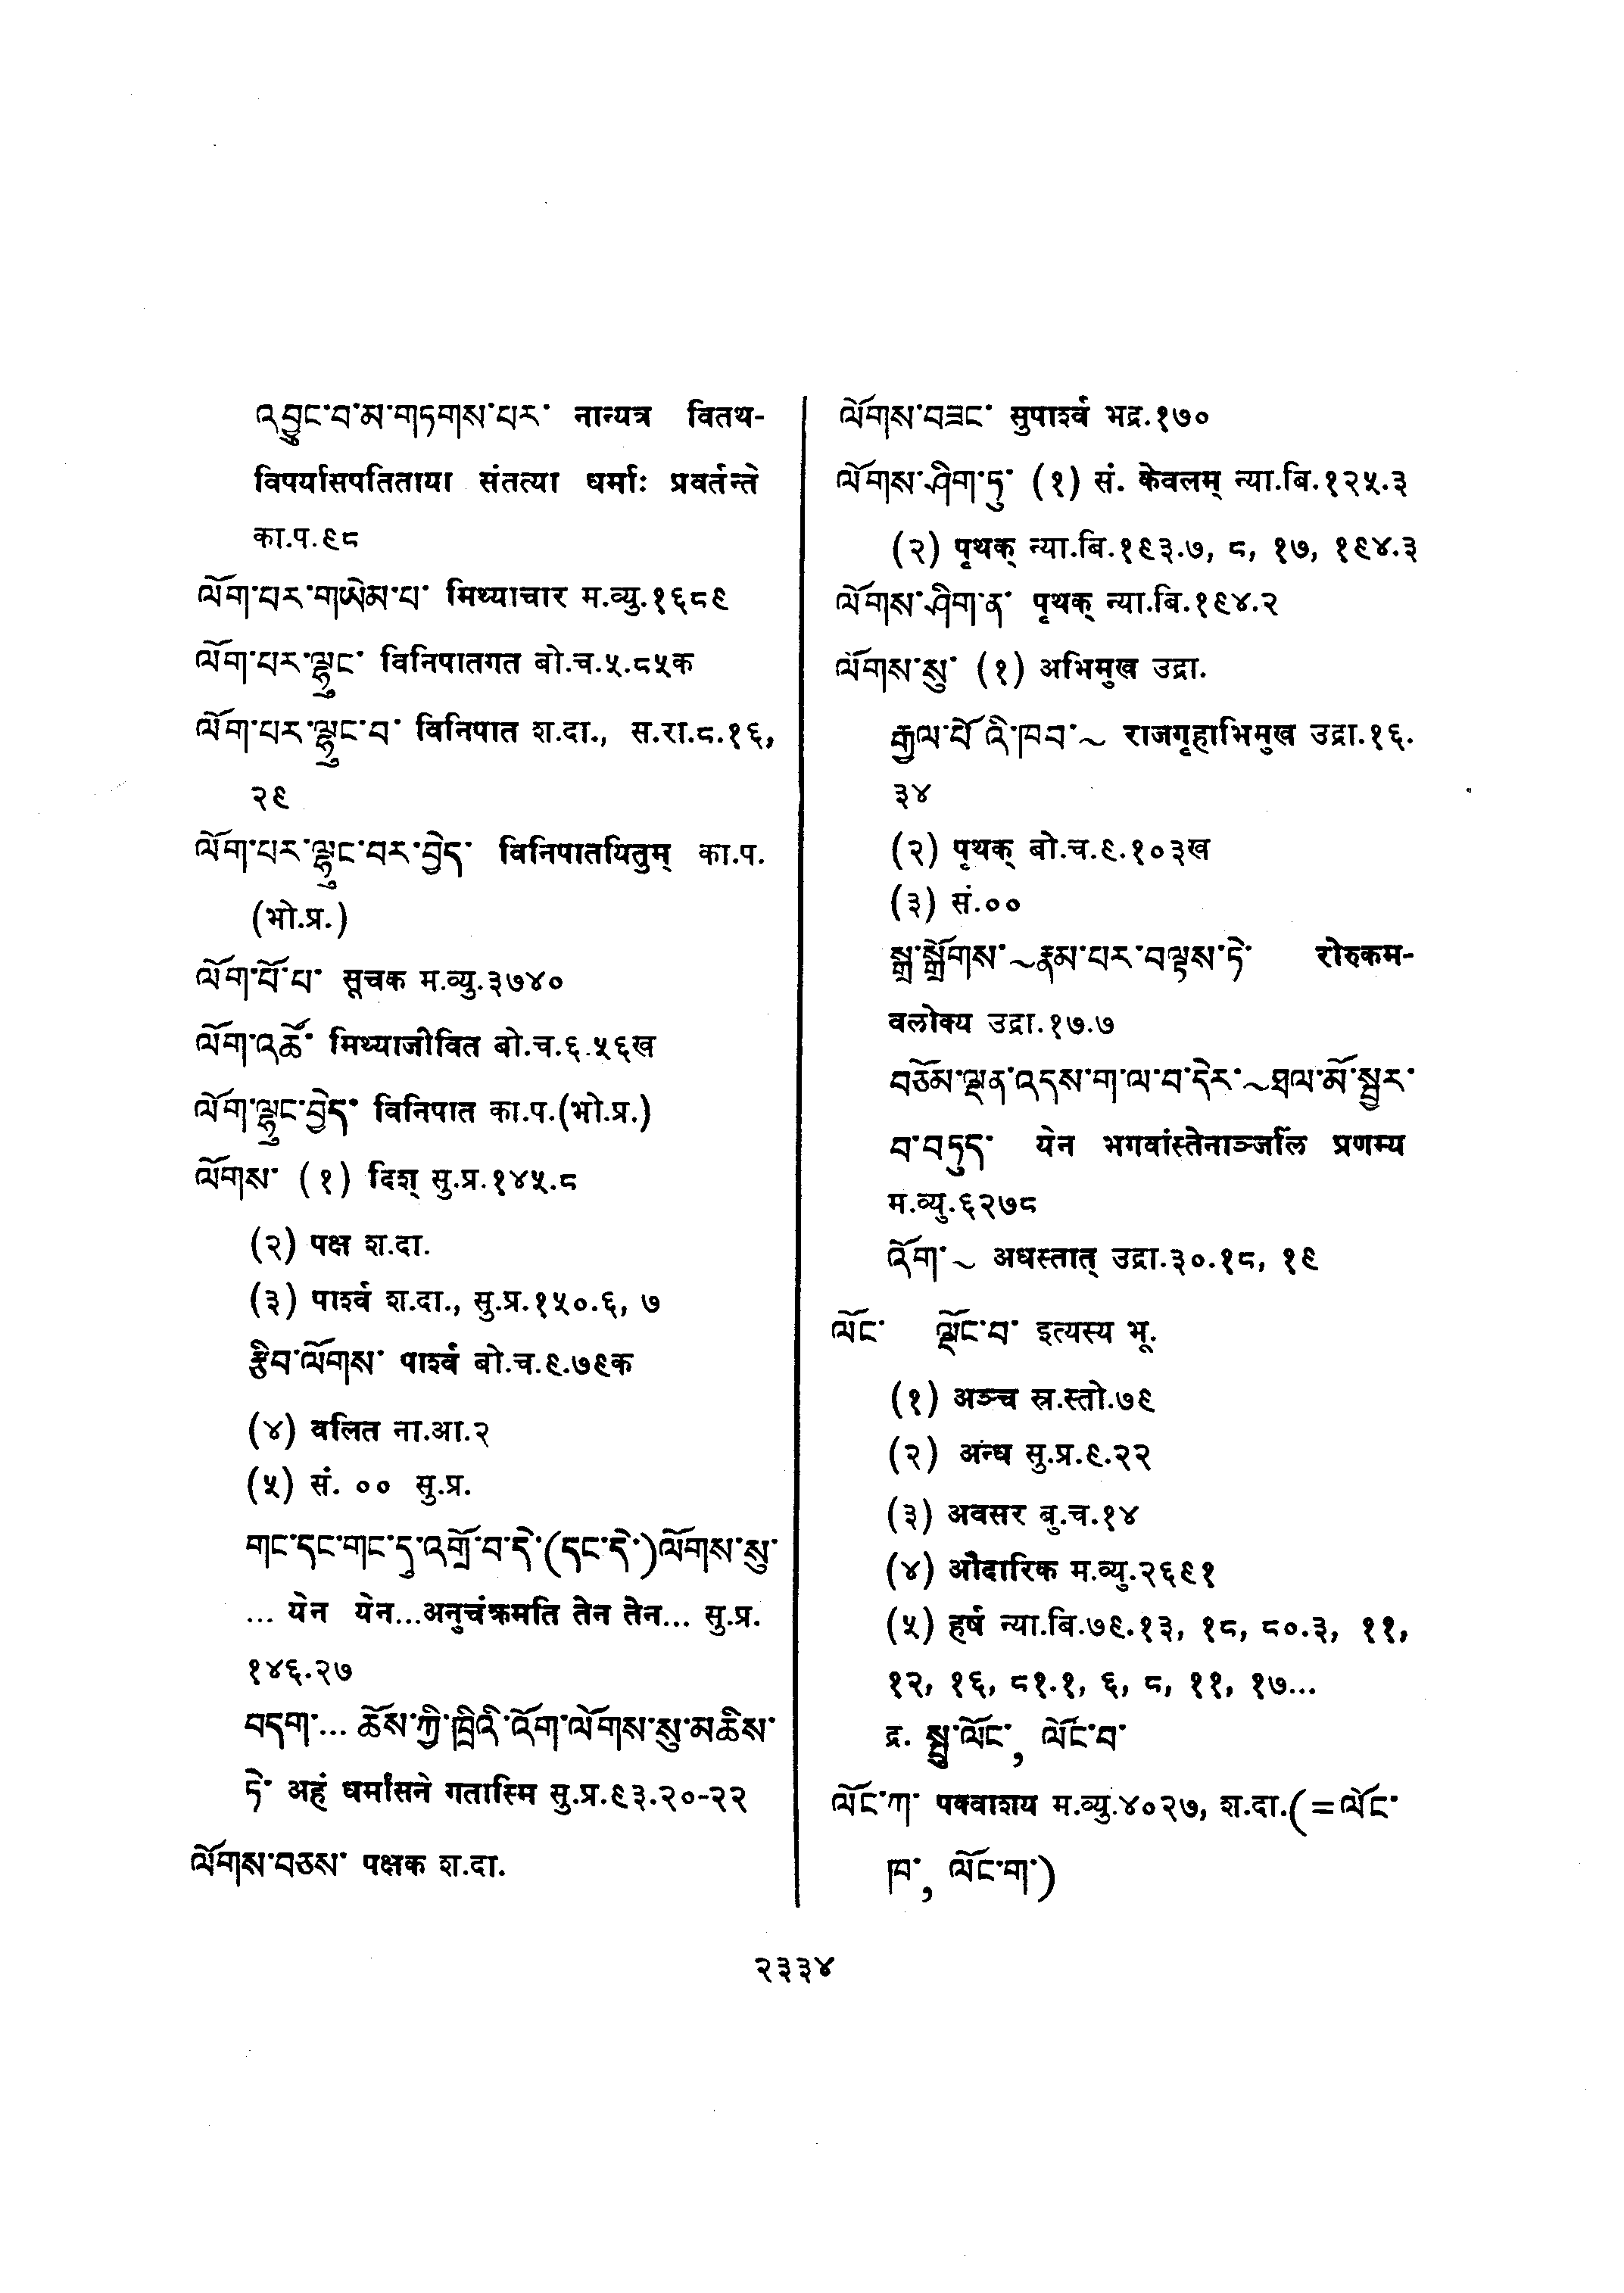 འབྱུང་བ་མ་གཏགས་པར་ नान्यत्र वितथ-
विपर्यासपतिताया संतत्या धर्माः प्रवर्तन्ते
का.प.९८
ལོག་པར་གཡེམ་པ་ मिथ्याचार म.व्यु.१६८९
ལོག་པར་ལྟུང་ विनिपातगत बो.च.५.८५क
ལོག་པར་ལྟུང་བ་ विनिपात श.दा., स.रा.८.१६,
२९
ལོག་པར་ལྟུང་བར་བྱེད་ विनिपातयितुम् का.प.
(भो.प्र.)
ལོག་པོ་པ་ सूचक म.व्यु.३७४०
ལོག་འཚོ་ मिथ्याजीवित बो.च.६.५६ख
ལོག་ལྟུང་བྱེད་ विनिपात का.प.(भो.प्र.)
ལོགས་ (१) दिश् सु.प्र.१४५.८
(२) पक्ष श.दा.
(३) पार्श्व श.दा., सु.प्र.१५०.६, ७
རྩིབ་ལོགས་ पार्श्व बो.च.९.७९क
(४) वलित ना.आ.२
(५) सं. ०० सु.प्र.
གང་དང་གང་དུ་འགྲོ་བ་དེ་(དང་དེ་)ལོགས་སུ་
... येन येन...अनुचंक्रमति तेन तेन... सु.प्र.
१४६.२७
བདག་... ཆོས་ཀྱི་ཁྲིའི་འོག་ལོགས་སུ་མཆིས་
ཏེ་ अहं धर्मासने गतास्मि सु.प्र.९३.२०-२२
ལོགས་བཅས་ पक्षक श.दा.
ལོགས་བཟང་ सुपार्श्व भद्र.१७०
ལོགས་ཤིག་ཏུ་ (१) सं. केवलम् न्या.बि.१२५.३
(२) पृथक् न्या.बि.१९३.७, ८, १७, १९४.३
ལོགས་ཤིག་ན་ पृथक् न्या.बि.१९४.२
ལོགས་སུ་ (१) अभिमुख उद्रा.
རྒྱལ་པོའི་ཁབ་~ राजगृहाभिमुख उद्रा.१६.
३४
(२) पृथक् बो.च.९.१०३ख
(३) सं.००
སྒྲ་སྒྲོགས་~རྣམ་པར་བལྟས་ཏེ་ रोरुकम-
वलोक्य उद्रा.१७.७
བཅོམ་ལྡན་འདས་ག་ལ་བ་དེར་~ཐལ་མོ་སྦྱར་
བ་བཏུད་ येन भगवांस्तेनाञ्जलिं प्रणम्य
म.व्यु.६२७८
འོག་~ अधस्तात् उद्रा.३०.१८, १९
ལོང་ ལྡོང་བ་ इत्यस्य भू.
(१) अञ्च स्र.स्तो.७९
(२) अन्ध सु.प्र.९.२२
(३) अवसर बु.च.१४
(४) औदारिक म.व्यु.२६९१
(५) हर्ष न्या.बि.७९.१३, १८, ८०.३, ११,
१२, १६, ८१.१, ६, ८, ११, १७...
द्र. སྤུ་ལོང་, ལོང་བ་
ལོང་ཀ་ पक्वाशय म.व्यु.४०२७, श.दा.(=ལོང་
ཁ་, ལོང་ག་)
२३३४